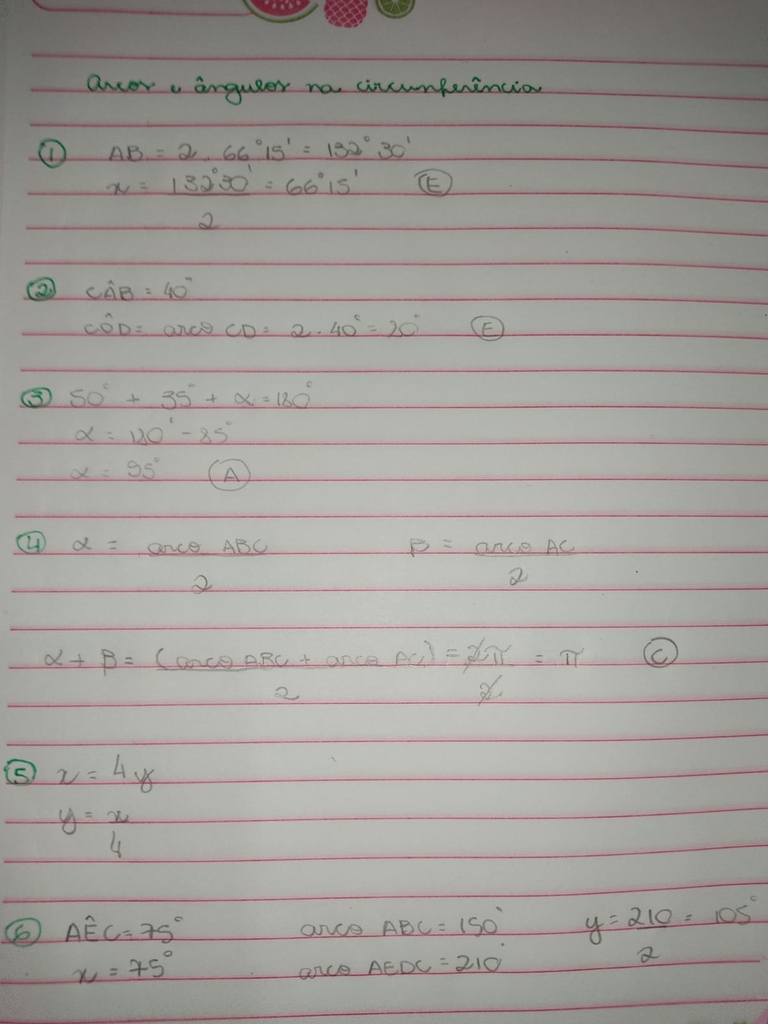 arcos e ângulos na circunferência
① AB = 2 . 66°15' = 132°30'
x = 132°30' / 2 = 66°15' (E)
② CÂB = 40°
CÔD = arco CD = 2 . 40° = 20° (E)
③ 50° + 35° + α = 180°
α = 180° - 85°
α = 95° (A)
④ α = arco ABC / 2 β = arco AC / 2
α + β = (arco ABC + arco AC) / 2 = 2π / 2 = π (C)
⑤ x = 4y
y = x / 4
⑥ AÊC = 75° arco ABC = 150° y = 210 / 2 = 105°
x = 75° arco AEDC = 210°